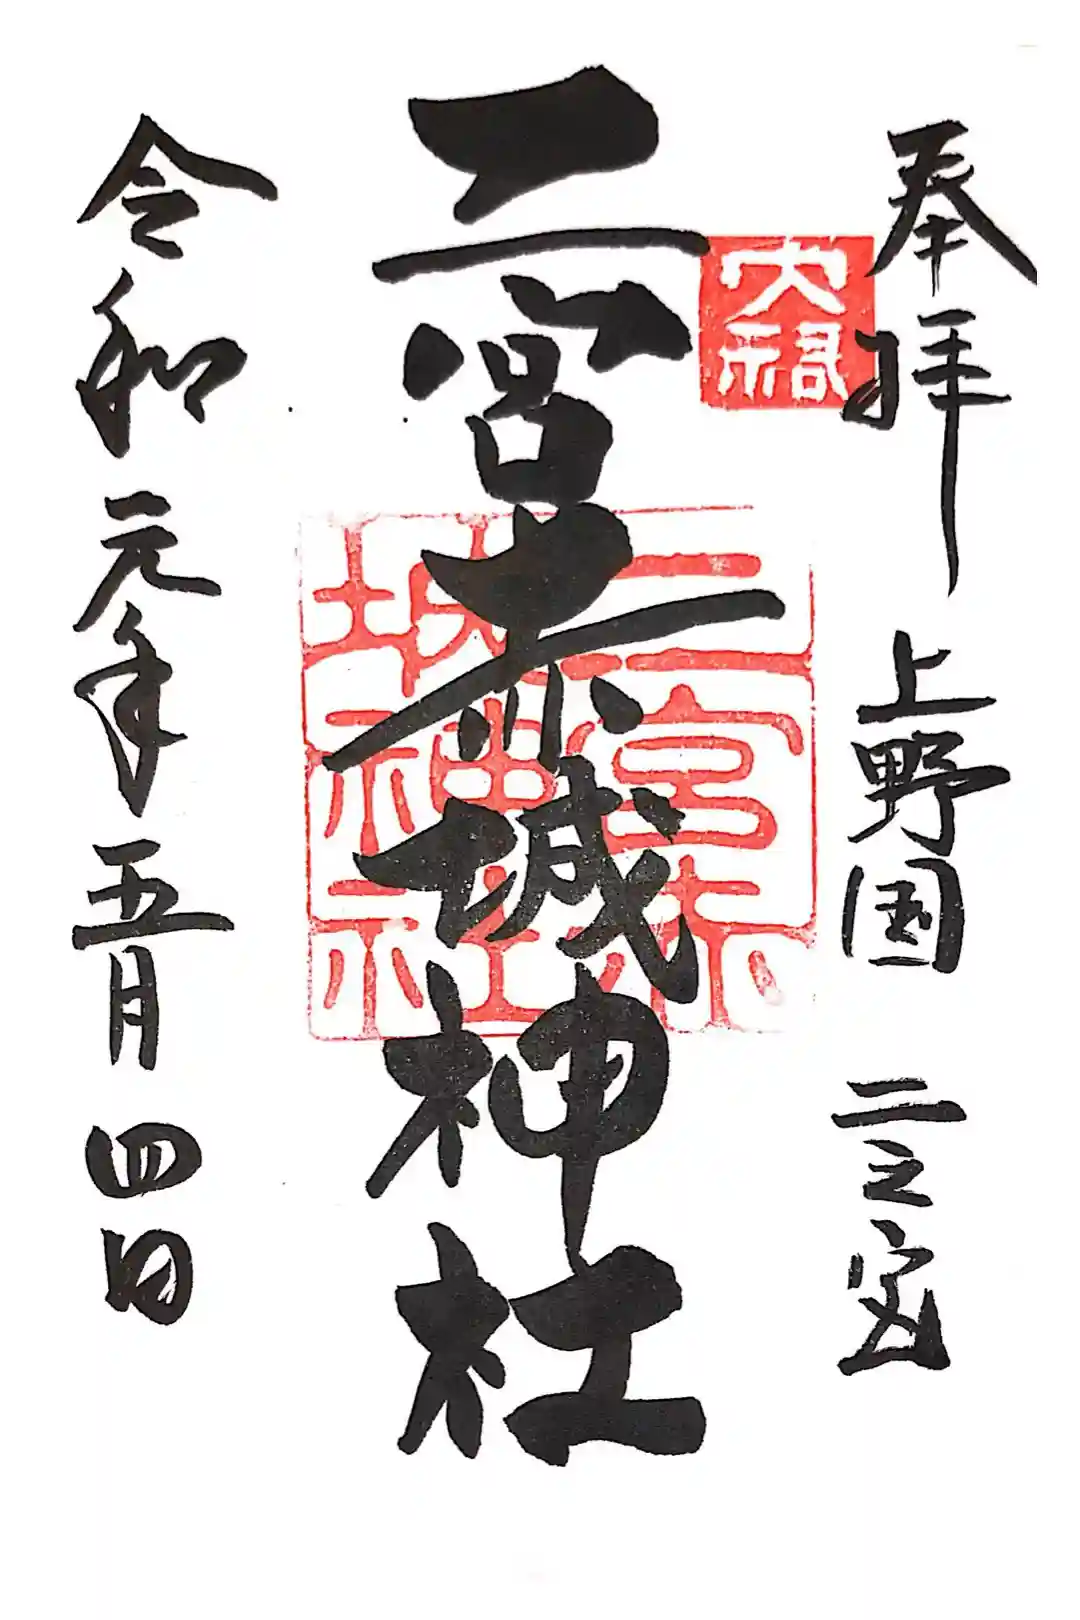 奉拝
上野国 二之宮
二宮赤城神社
二宮赤
城神社
令和元年五月四日